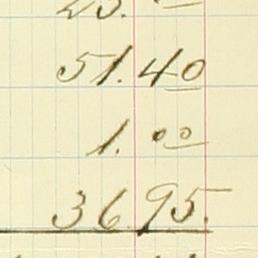 51.40
1.00
36.95.